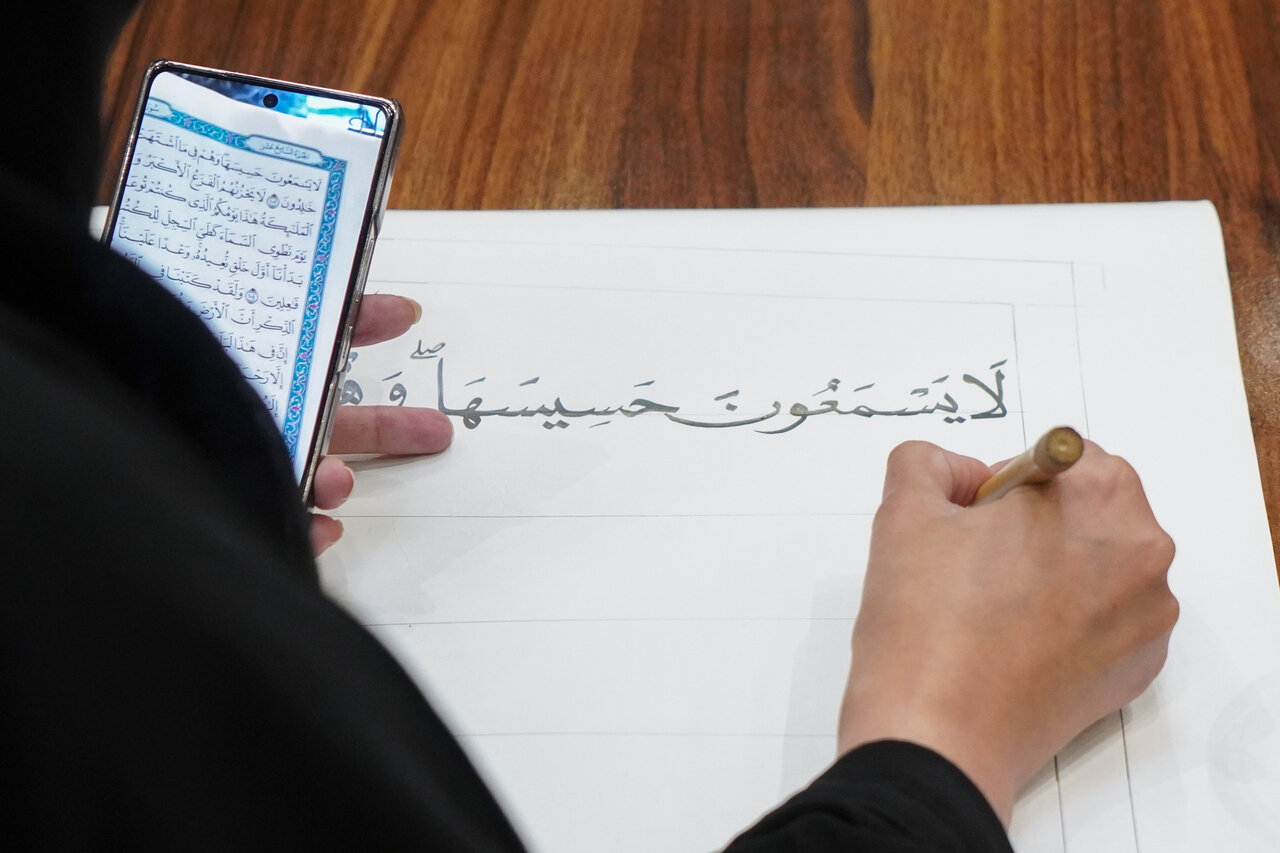 الجزء السابع عشر
لَا يَسْمَعُونَ حَسِيسَهَا وَهُمْ فِي مَا ٱشْتَهَتْ
خَٰلِدُونَ ١٠٢ لَا يَحْزُنُهُمُ ٱلْفَزَعُ ٱلْأَكْبَرُ وَ
ٱلْمَلَٰٓئِكَةُ هَٰذَا يَوْمُكُمُ ٱلَّذِي كُنتُمْ تُوعَ
يَوْمَ نَطْوِي ٱلسَّمَآءَ كَطَيِّ ٱلسِّجِلِّ لِلْكُتُ
بَدَأْنَآ أَوَّلَ خَلْقٍ نُّعِيدُهُۥ وَعْدًا عَلَيْنَآ
فَٰعِلِينَ ١٠٤ وَلَقَدْ كَتَبْنَا فِي
ٱلذِّكْرِ أَنَّ ٱلْأَرْضَ
إِنَّ فِي هَٰذَا
لَا يَسْمَعُونَ حَسِيسَهَا ۖ وَ